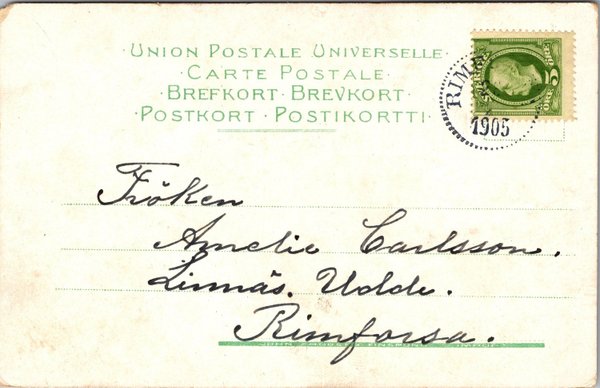 UNION POSTALE UNIVERSELLE
· CARTE POSTALE ·
· BREFKORT · BREVKORT ·
· POSTKORT · POSTIKORTTI ·
5 ÖRE
RIM
1905
Fröken
Amelie Carlsson.
Linnäs. Udde.
Rimforsa.